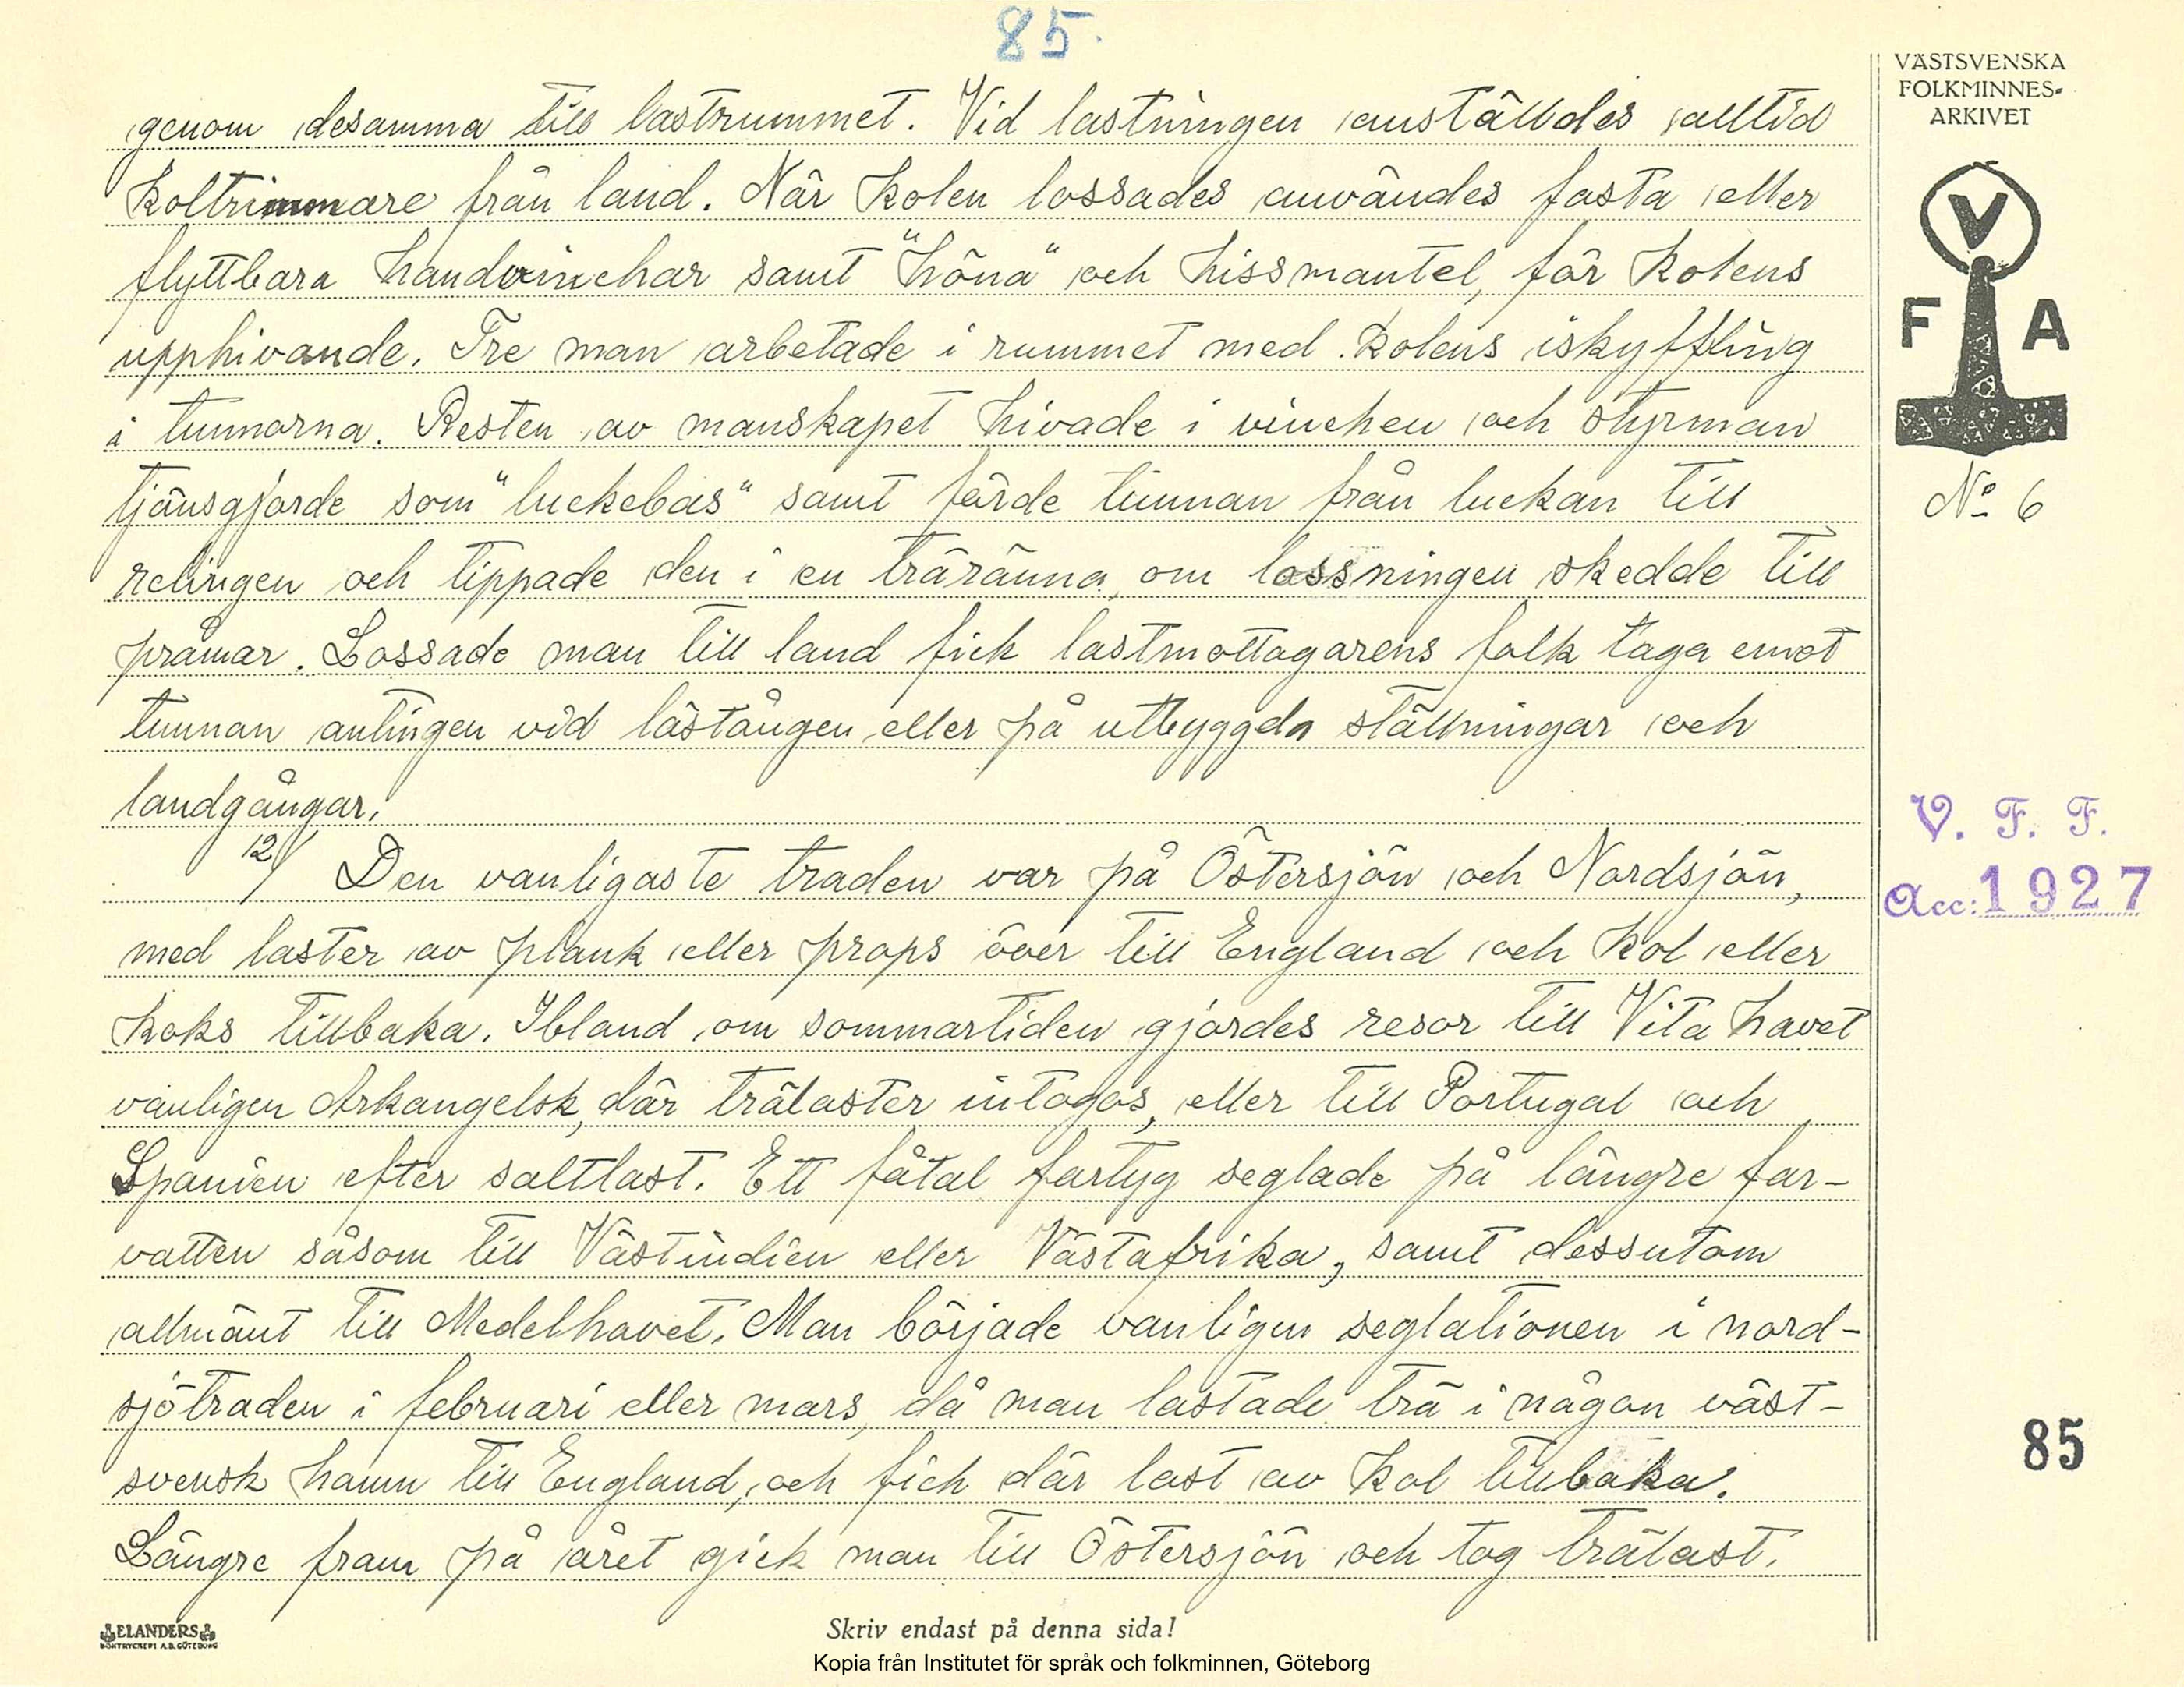 85.
genom desamma till lastrummet. Vid lastningen anställdes alltid
koltrimmare från land. När kolen lossades användes fasta eller
flyttbara handvinchar samt "höna" och hissmantel, för kolens
upphivande. Tre man arbetade i rummet med kolens iskyffling
i tunnorna. Resten av manskapet hivade i vinchen och styrman
tjänsgjorde som "luckebas" samt förde tunnan från luckan till
relingen och tippade den i en träränna, om lossningen skedde till
pråmar. Lossade man till land fick lastmottagarens folk taga emot
tunnan antingen vid låstången eller på utbyggda ställningar och
landgångar.
12/ Den vanligaste traden var på Östersjön och Nordsjön,
med laster av plank eller props över till England och kol eller
koks tillbaka. Ibland om sommartiden gjordes resor till Vita havet
vanligen Arkangelsk, där trälaster intogos, eller till Portugal och
Spanien efter saltlast. Ett fåtal fartyg seglade på längre far-
vatten såsom till Västindien eller Västafrika, samt dessutom
allmänt till Medelhavet. Man började vanligen seglationen i nord-
sjötraden i februari eller mars, då man lastade trä i någon väst-
svensk hamn till England, och fich där last av kol tillbaka.
Längre fram på året gick man till Östersjön och tog trälast.
VÄSTSVENSKA
FOLKMINNES-
ARKIVET
V
F A
No 6
V. F. F.
Acc: 1927
85
ELANDERS
BOKTRYCKERI A.B. GÖTEBORG
Skriv endast på denna sida!
Kopia från Institutet för språk och folkminnen, Göteborg